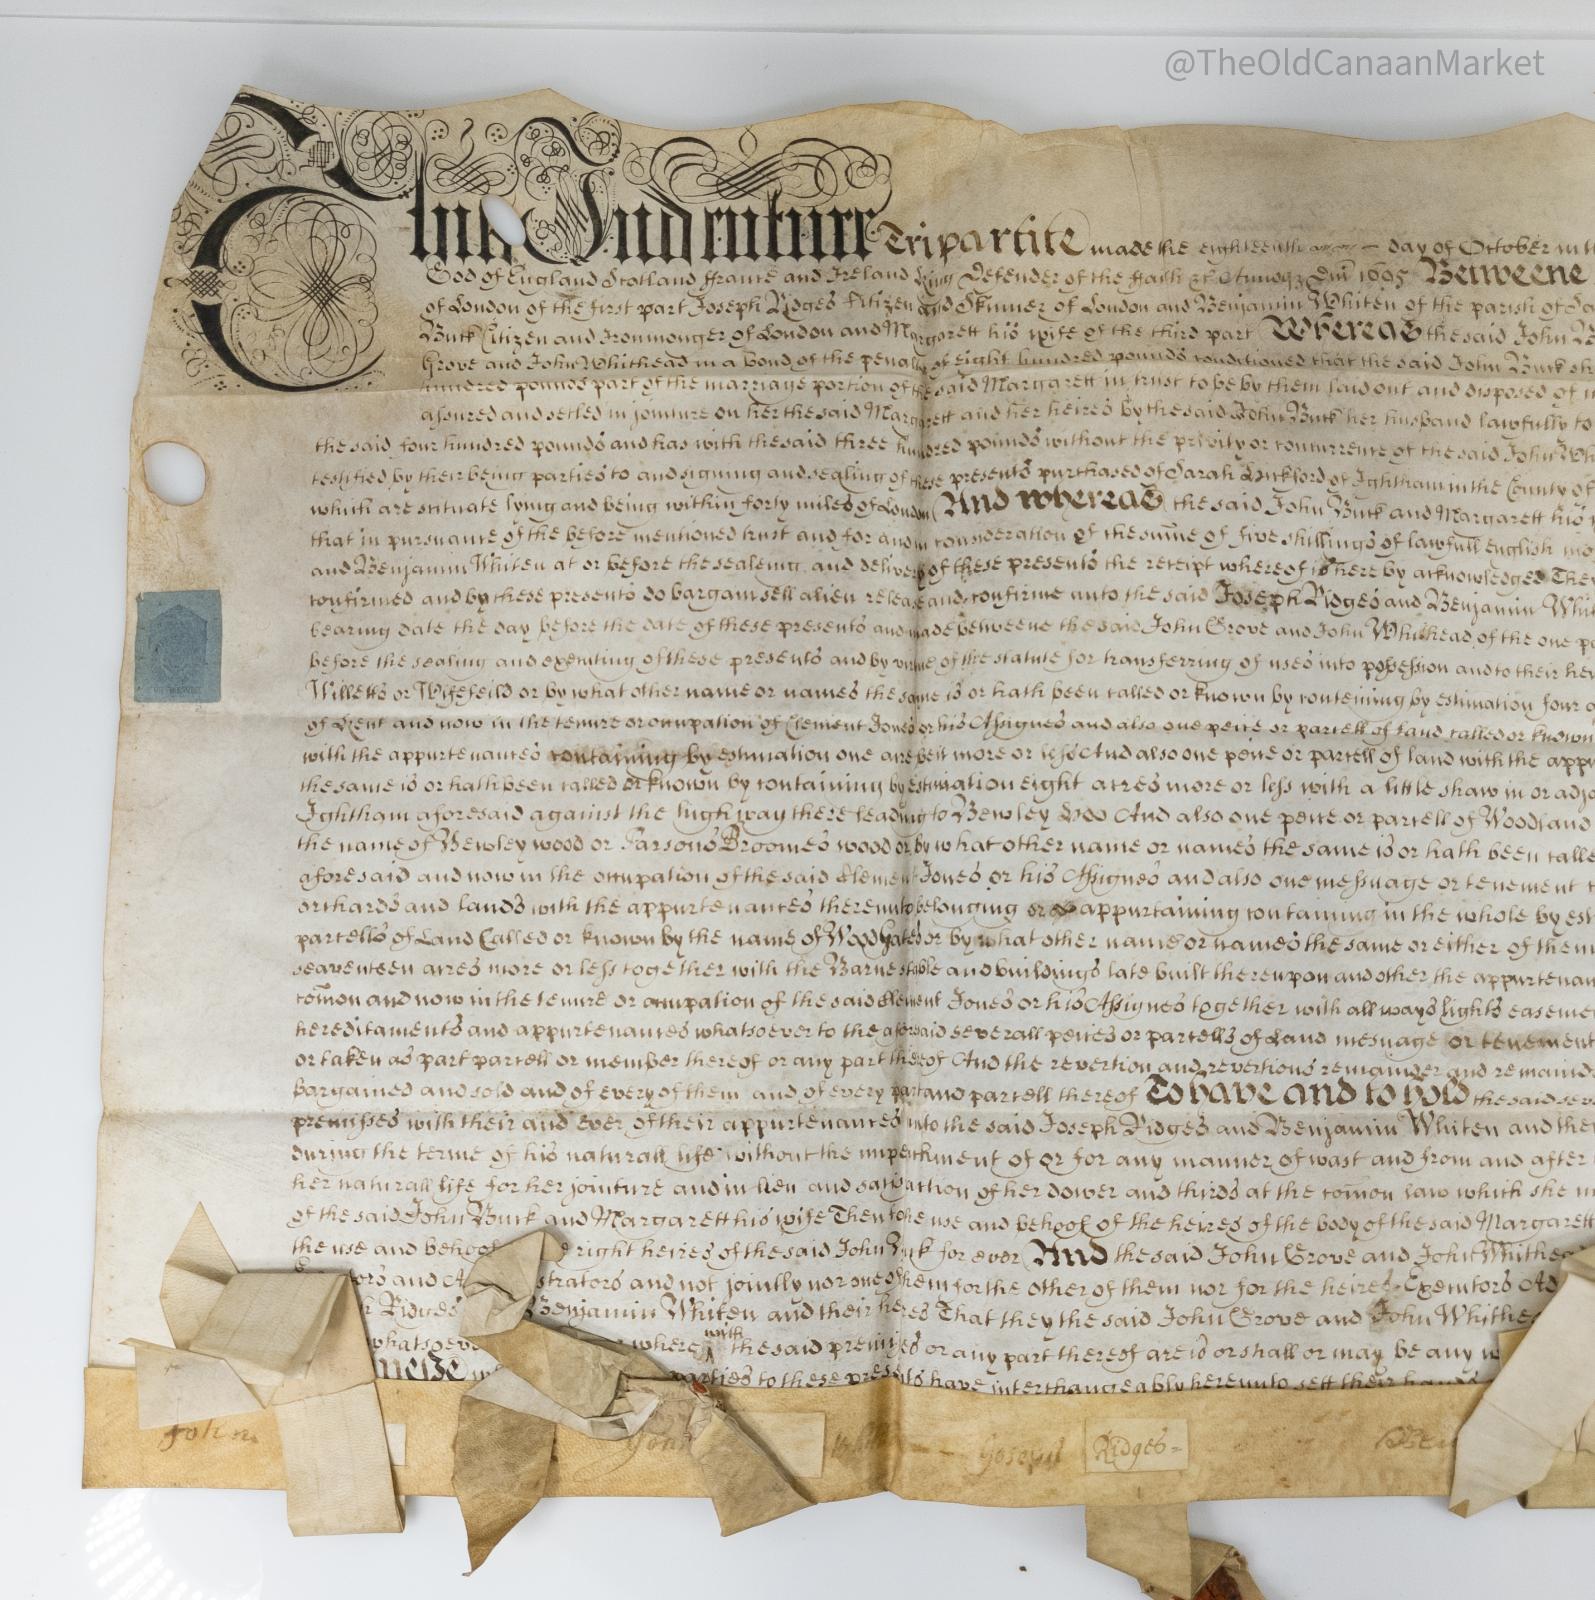 @TheOldCanaanMarket
This Indenture Tripartite made the eighteenth day of October in th
God of England Scotland ffrance and Ireland King Defender of the ffaith &c Annoqz Dm̄ 1695 Betweene
of London of the first part Joseph Ridges Citizen and Skinner of London and Benjamin Whiten of the parish of
Buck Citizen and Ironmonger of London and Margarett his wife of the third part Whereas the said John
Grove and John Whithead in a bond of the penalty of eight hundred pounds conditioned that the said John Buck
hundred pounds part of the marriage portion of the said Margarett in trust to be by them laid out and disposed of
assured and setled in joincture on her the said Margarett and her heires by the said John Buck her husband lawfully to
the said four hundred pounds and has with the said three hundred pounds without the privity or concurrence of the said John
testified by their being parties to and signing and sealing of these presents purchased of Sarah Bickford of Ightham in the County of
which are scituate lying and being within forty miles of London And whereas the said John Buck and Margarett his
that in pursuance of the before mentioned trust and for and in consideration of the sum̄e of five shillings of lawfull english
and Benjamin Whiten at or before the sealeing and delivery of these presents the receipt whereof is here by acknowledged They
confirmed and by these presents do bargain sell alien release and confirme unto the said Joseph Ridges and Benjamin Whit
bearing date the day before the date of these presents and made betweene the said John Grove and John Whithead of the one p
before the sealing and executing of these presents and by virtue of the statute for transferring of uses into possession and to their hei
Willetts or Wifefeild or by what other name or names the same is or hath been called or known by conteining by estimation four a
of Kent and now in the tenure or occupation of Clement Jones or his Assignes and also one peice or parcell of land called or known
with the appurtenances containing by estimation one acre be it more or less And also one peice or parcell of land with the appu
the same is or hath been called or known by containing by estimation eight acres more or less with a little shaw in or adjo
Ightham aforesaid against the high way there leading to Bewley And also one peice or parcell of Woodland
the name of Bewley wood or Parsons Broomes wood or by what other name or names the same is or hath been calle
aforesaid and now in the occupation of the said Clement Jones or his Assignes and also one messuage or tenement
orchards and lands with the appurtenances thereunto belonging or appurtaining containing in the whole by est
parcells of Land Called or known by the name of Woodgates or by what other name or names the same or either of them
seaventeen acres more or less together with the Barne stable and buildings late built thereupon and other the appurtenan
com̄on and now in the tenure or occupation of the said Clement Jones or his Assignes together with all ways lights easeme
hereditaments and appurtenances whatsoever to the aforesaid severall peices or parcells of Land messuage or tenement
or taken as part parcell or member thereof or any part thereof And the revertion and revertions remainder and remaind
bargained and sold and of every of them and of every part and parcell thereof To have and to hold the said seve
premisses with their and ever of their appurtenances unto the said Joseph Ridges and Benjamin Whiten and the
during the terme of his naturall life without the impeachment of or for any manner of wast and from and after
her naturall life for her jointure and in lieu and satisfaction of her dower and thirds at the com̄on law which she m
of the said John Buck and Margarett his wife Then to the use and behoof of the heires of the body of the said Margarett
the use and behoof right heires of the said John Buck for ever And the said John Grove and John Whithea
tors and A strators and not joiutly nor one of them for the other of them nor for the heires Executors Ad
Ridges Benjamin Whiten and their heires That they the said John Grove and John Whithe
whatsoeve where with the said premisses or any part thereof are is or shall or may be any w
parties to these presents have interchangeably hereunto sett their hands
John Joseph Ridges Ben